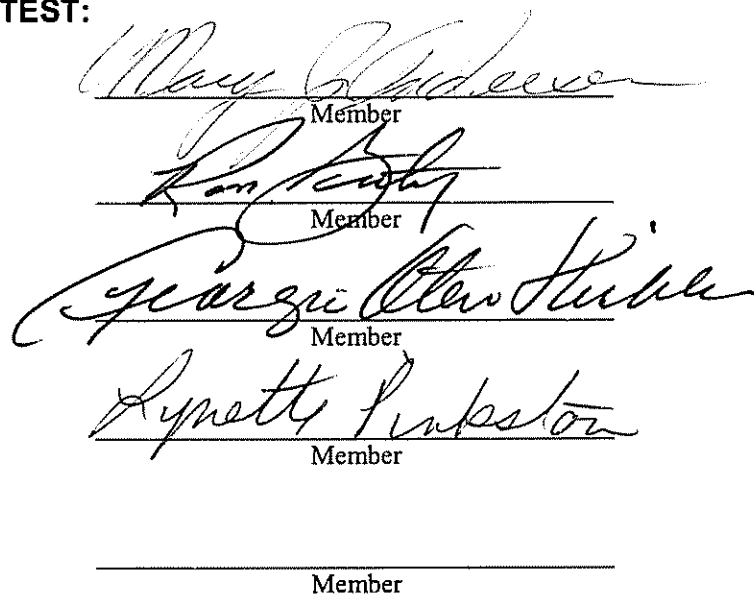 TEST:
Mary J. Anderson
Member
Ron
Member
Georgia Otero
Member
Lynette Pinkston
Member
Member